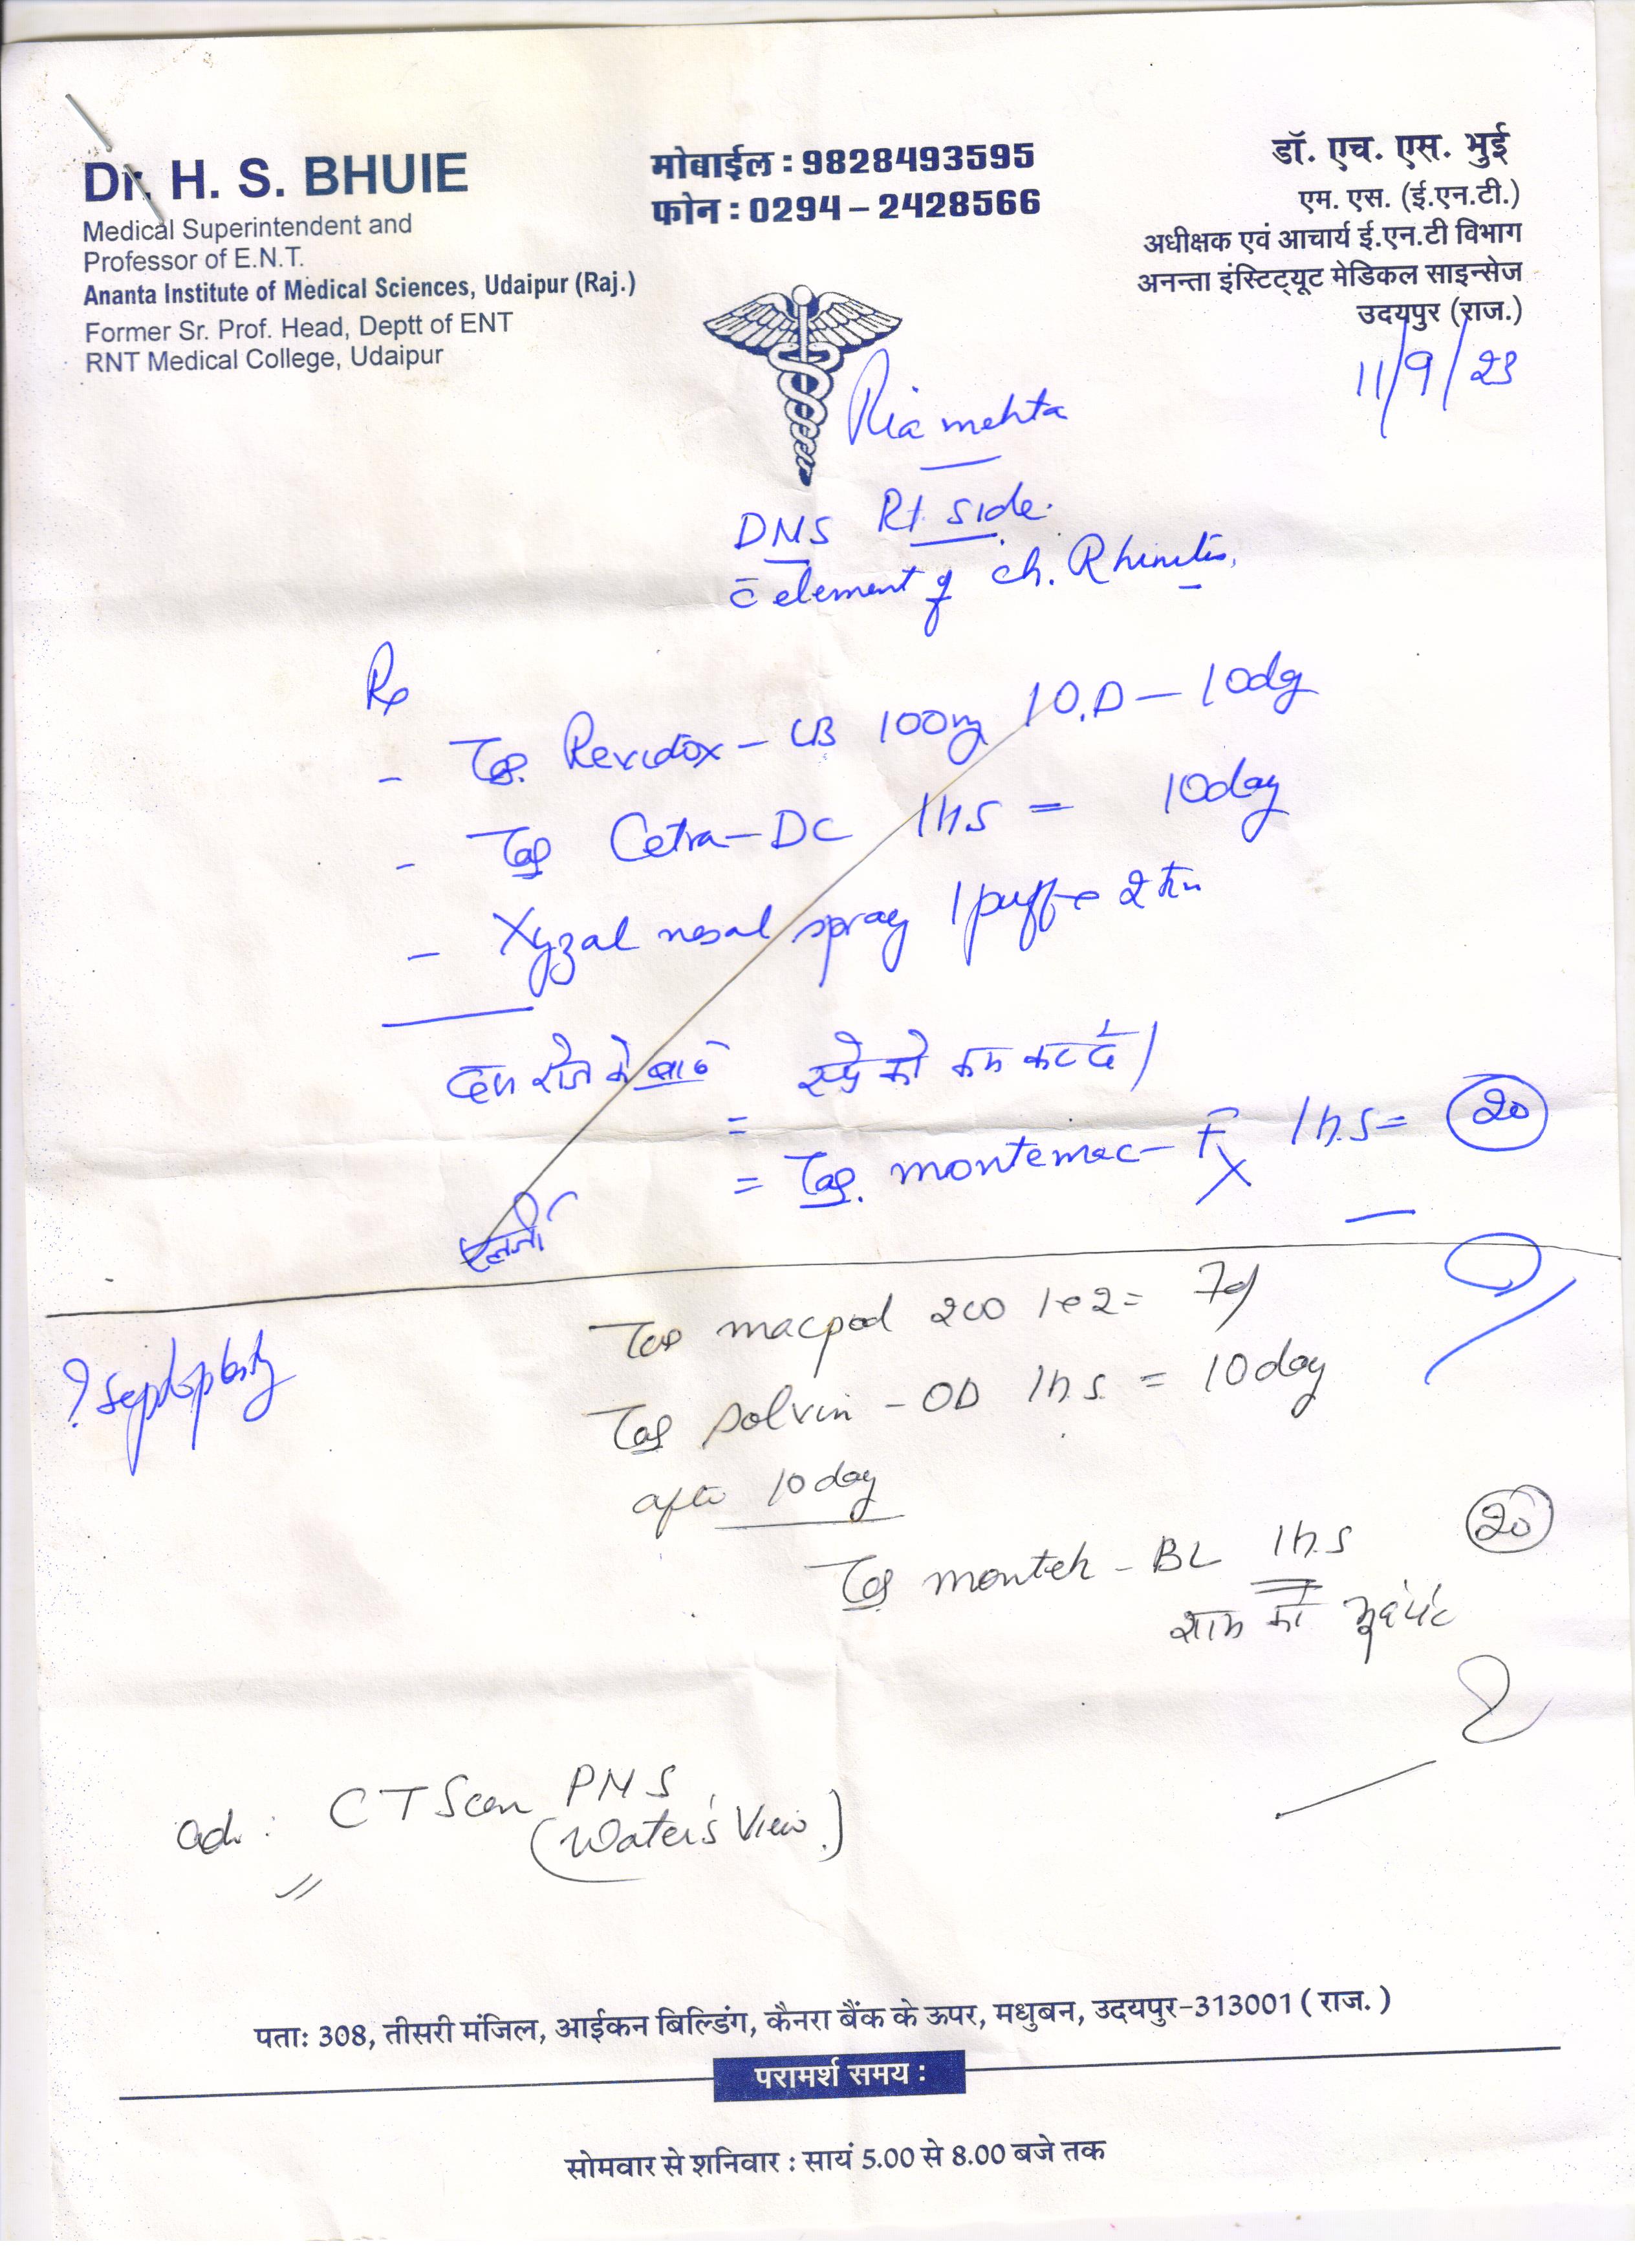 Dr. H. S. BHUIE
Medical Superintendent and
Professor of E.N.T.
Ananta Institute of Medical Sciences, Udaipur (Raj.)
Former Sr. Prof. Head, Deptt of ENT
RNT Medical College, Udaipur
मोबाईल : 9828493595
फोन : 0294 – 2428566
डॉ. एच. एस. भुई
एम. एस. (ई.एन.टी.)
अधीक्षक एवं आचार्य ई.एन.टी विभाग
अनन्ता इंस्टिट्यूट मेडिकल साइन्सेज
उदयपुर (राज.)
11/9/23
Ria mehta
DNS Rt. side.
c̄ element of ch. Rhinitis,
Rx
- Tab. Revidox - LB 100mg 1 O.D – 10day
- Tab Cetra-DC 1 h s = 10day
- Xyzal nasal spray 1 puff-e 2
दस रोज के बाद स्प्रे को कम कर दें।
=
= Tab. montemac- Fx 1 h.s = 20
एलर्जी
? septoplasty
Tab macpod 200 1 e 2 = 7d
Tab solvin - OD 1 h s. = 10 day
after 10 day
Tab montek - BL 1 h.s 20
शाम को
adv: CT Scan PNS
(Water's View.)
पता: 308, तीसरी मंजिल, आईकन बिल्डिंग, कैनरा बैंक के ऊपर, मधुबन, उदयपुर-313001 ( राज. )
परामर्श समय :
सोमवार से शनिवार : सायं 5.00 से 8.00 बजे तक